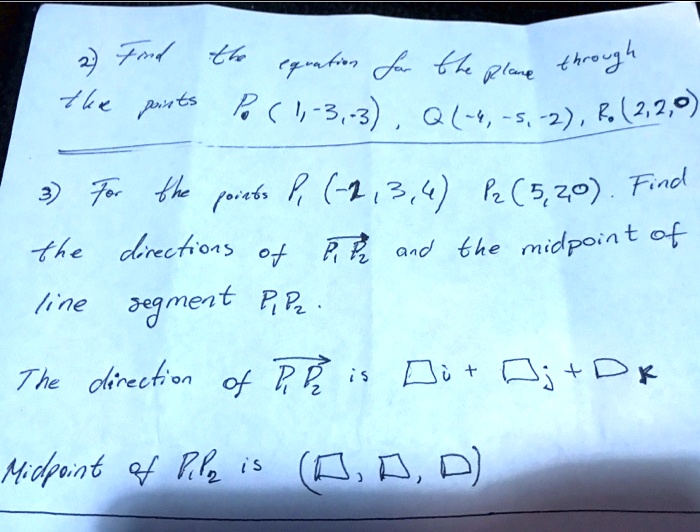 2) Find the equation for the plane through
the points P₀ (1,-3,-3), Q(-4,-5,-2), R₀(2,2,0)
3) For the points P₁ (-1,3,4) P₂(5,2,0). Find
the directions of P₁P₂ and the midpoint of
line segment P₁P₂.
The direction of P₁P₂ is □i + □j + □k
Midpoint of P₁P₂ is (□, □, □)